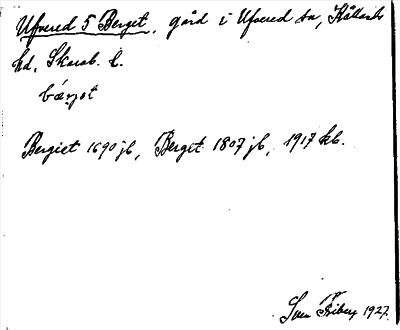 Ufvered 5 Berget, gård i Ufvered sn, Kållands
hd, Skarab. l.
bærjet
Bergiet 1690 jb, Berget 1807 jb, 1917 kb.
Sven Friberg 1927.